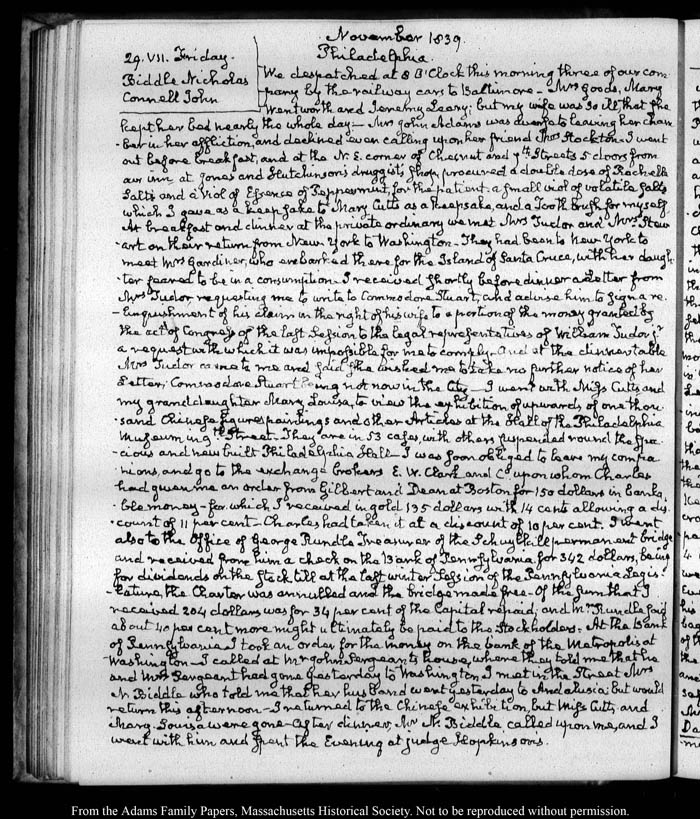 November 1839.
29. VII. Friday.
Philadelphia.
Biddle Nicholas
Connell John
We despatched at 8 O'Clock this morning three of our com-
pany by the railway cars to Baltimore – Mrs Goods, Mary
Wentworth and Jeremy Leary; but my wife was so ill, that she
kept her bed nearly the whole day – Mrs John Adams was averse to leaving her cham
-ber in her affliction, and declined even calling upon her friend Mrs Stockton. I went
out before breakfast, and at the N. E. corner of Chesnut and 7th Streets 5 doors from
our inn, at Jones and Hutchinson's druggists shop procured a double dose of Rochelle
Salts and a Viol of Essence of Peppermint, for the patient. a small viol of volatile salts
which I gave as a keepsake to Mary Cutts as a keepsake, and a Tooth brush for myself.
At breakfast and dinner at the private ordinary we met Mrs Tudor and Mrs Stew
-art on their return from New-York to Washington – They had been to New York to
meet Mrs Gardiner, who embarked there for the Island of Santa Cruce, with her daugh-
ter feared to be in a consumption. I received shortly before dinner a Letter from
Mrs Tudor requesting me to write to Commodore Stuart, and advise him to sign a re-
-linquishment of his claim in the right of his wife to a portion of the money granted by
the act of Congress of the last Session to the legal representatives of William Tudor jr
a request with which it was impossible for me to comply – And at the dinner table
Mrs Tudor came to me and said she wished me to take no further notice of her
Letter; Commodore Stuart being not now in the City – I went with Miss Cutts and
my granddaughter Mary Louisa, to view the exhibition of upwards of one thou-
-sand Chinese figures paintings and other Articles at the Hall of the Philadelphia
Museum in 9th Street. They are in 53 cases, with others suspended round the spa
-cious and new built Philadelphia Hall – I was soon obliged to leave my compa
-nions, and go to the exchange brokers E. W. Clark and Co upon whom Charles
had given me an order from Gilbert and Dean at Boston for 150 dollars in bank
-ble money – for which I received in gold 135 dollars with 14 cents allowing a dis-
-count of 11 per cent – Charles had taken it at a discount of 10 per cent. I went
also to the Office of George Rundle Treasurer of the Schuylkill permanent bridge
and received from him a check on the Bank of Pennsylvania for 342 dollars, being
for dividends on the Stock till at the last winter Session of the Pennsylvania Legis-
-lature, the Charter was annulled and the bridge made free – Of the sum that I
received 204 dollars was for 34 per cent of the Capital repaid; and Mr Rundle said
about 40 per cent more might ultimately be paid to the Stockholders. At the Bank
of Pennsylvania I took an order for the money on the bank of the Metropolis at
Washington – I called at Mr John Sergeant's house, where they told me that he
and Mrs Sergeant had gone yesterday to Washington. I met in the Street Mrs
N. Biddle who told me that her husband went yesterday to Andalusia; but would
return this afternoon – I returned to the Chinese exhibition, but Miss Cutts and
Mary-Louisa were gone – After dinner, Mr N. Biddle called upon me, and I
went with him and spent the Evening at judge Hopkinson's.
From the Adams Family Papers, Massachusetts Historical Society. Not to be reproduced without permission.